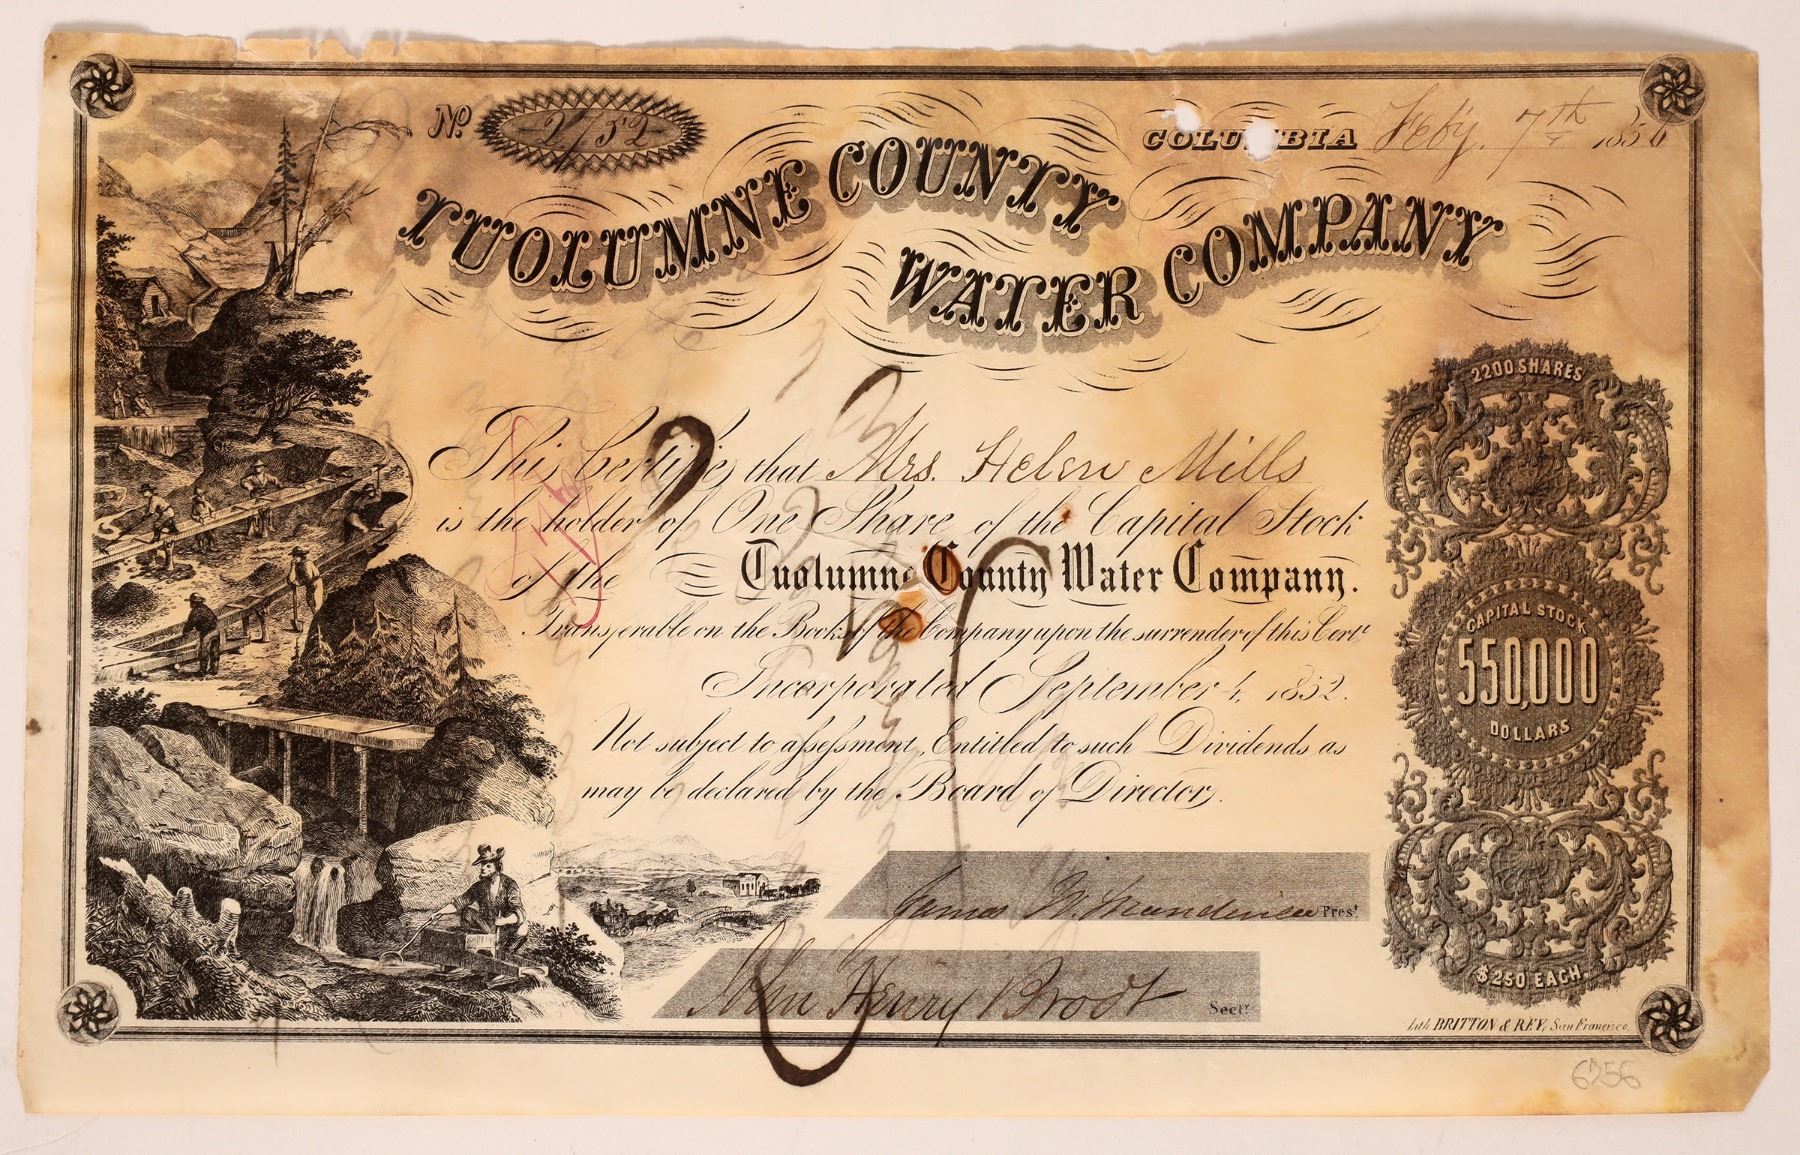 No 2152
COLUMBIA Feby. 7th 1856
TUOLUMNE COUNTY
WATER COMPANY
This Certifies that Mrs. Helen Mills
is the holder of One Share of the Capital Stock
of the Tuolumne County Water Company.
Transferable on the Books of the Company upon the surrender of this Certe
Incorporated September 4, 1852.
Not subject to assessment, Entitled to such Dividends as
may be declared by the Board of Directors.
2200 SHARES
CAPITAL STOCK
550,000
DOLLARS
$250 EACH.
James W. Mandeville Prest
John Henry Brodt Secty
Lith. BRITTON & REY, San Francisco.
6256